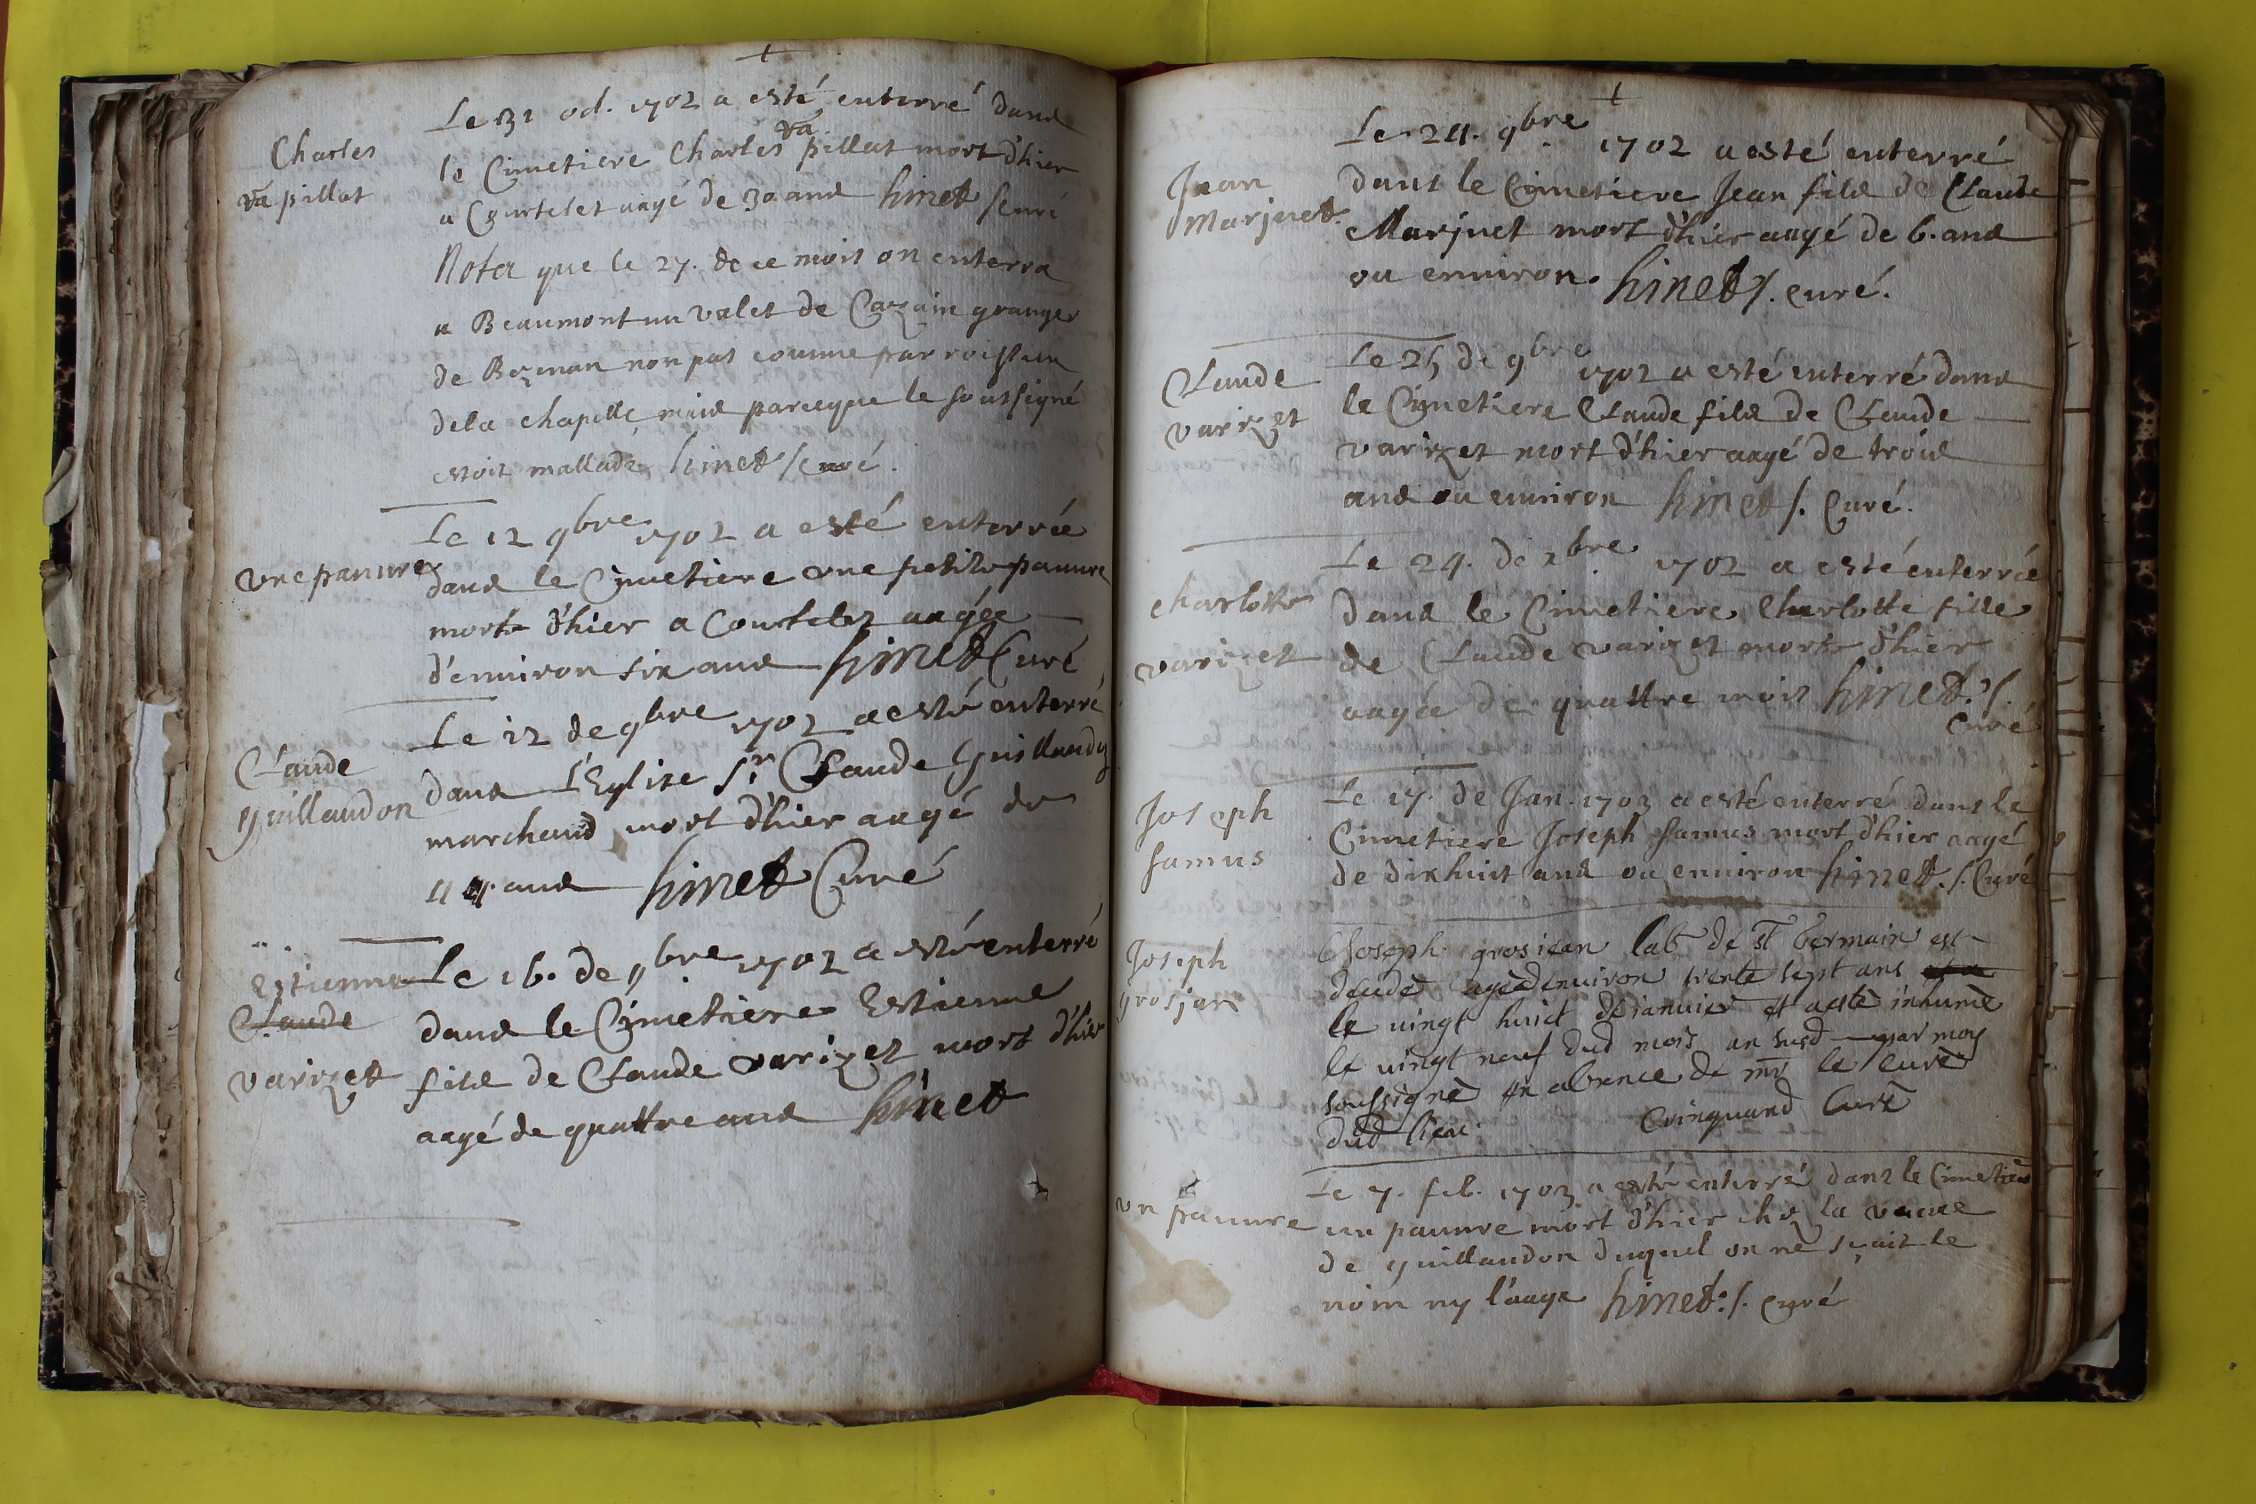 +
Le 31 oct. 1702 a esté enterré dans
Charles
va pillat
le Cimetiere Charles va pillat mort d'hier
a Courtelet aagé de 30 ans hinet s. curé
Nota que le 27. de ce mois on enterra
a Beaumont un valet de Cazain granger
de Bezman non pas comme parroissien
de la chapelle, mais parceque le soussigné
estoit mallade, hinet s. curé.
Le 12 9bre 1702 a esté enterrée
une pauure
dans le Cimetiere une petite pauure
morte d'hier a Courtelet aagée
d'enuiron six ans hinet Curé
Le 12 de 9bre 1702 a esté enterré
Claude
guillaudon
dans L'Eglise Sr Claude Guillaudon
marchand mort d'hier aagé de
44 ans hinet Curé
Le 16. de 9bre 1702 a esté enterré
Estienne
Claude
varizet
dans le Cimetiere Estienne
fils de Claude varizet mort d'hier
aagé de quattre ans hinet
+
Le 24. 9bre 1702 a esté enterré
Jean
Marjuet
dans le Cimetiere Jean fils de Claude
Marjuet mort d'hier aagé de 6. ans
ou enuiron. hinet s. curé.
Claude
varizet
Le 25 de 9bre 1702 a esté enterré dans
le Cimetiere Claude fils de Claude
varizet mort d'hier aagé de trois
ans ou enuiron hinet s. Curé.
Charlotte
varizet
Le 24. de xbre 1702 a esté enterrée
dans le Cimetiere Charlotte fille
de Claude varizet morte d'hier
aagée de quattre mois hinet. s.
Curé
Joseph
Jamus
Le 17. de Jan. 1703 a esté enterré dans le
Cimetiere Joseph Jamus mort d'hier aagé
de dixhuit ans ou enuiron hinet. s. Curé
Joseph
grosjan
Joseph grosiean lab de st Germain est
decedé agé denuiron trente sept ans
le uingt huict de ianuier et a esté inhumé
le uingt neuf dud mois an susd par moy
soussigné en absence de mr le curé
dud lieu. Cuinquand Curé
Le 7. feb. 1703 a esté enterré dans le Cimetiere
un pauure
un pauure mort d'hier chez la veuue
de guillaudon duquel on ne sçait le
nom ny l'aage hinet. s. Curé